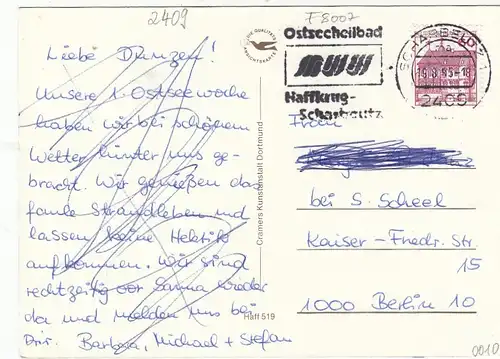 2409
F8007
DIE QUALITÄTS
ANSICHTSKARTE
Liebe
Unsere 1. Ostseewoche
haben wir bei schönem
Wetter hinter uns ge-
bracht. Wir genießen das
faule Strandleben und
lassen keine Hektik
aufkommen. Wir sind
rechtzeitig vor wieder
da und melden uns bei
Dir. Barbara, Michael + Stefan
Cramers Kunstanstalt Dortmund
Häff 519
Ostseeheilbad
Haffkrug-
Scharbeutz
SCHARBEUTZ 1
2409
Frau
bei S. Scheel
Kaiser-Friedr. Str.
15
1000 Berlin 10
0010